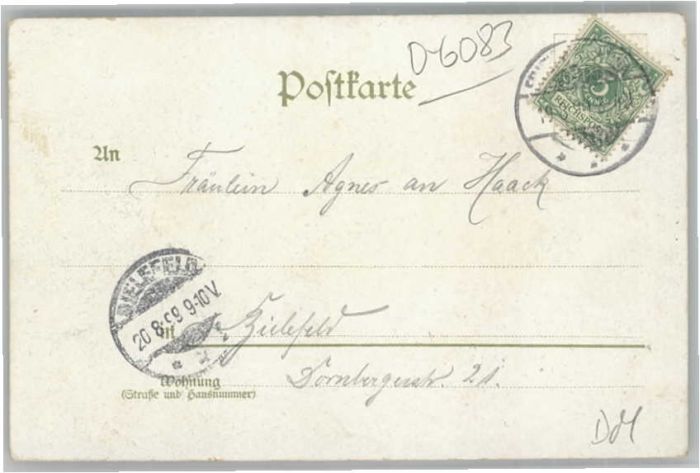 D-6083
Postkarte
5
REICHSPOST
An
Fräulein Agnes an Haack
BIELEFELD
20 8.99 9-10V.
in Bielefeld
Wohnung
(Straße und Hausnummer)
Dornbergerstr. 21.